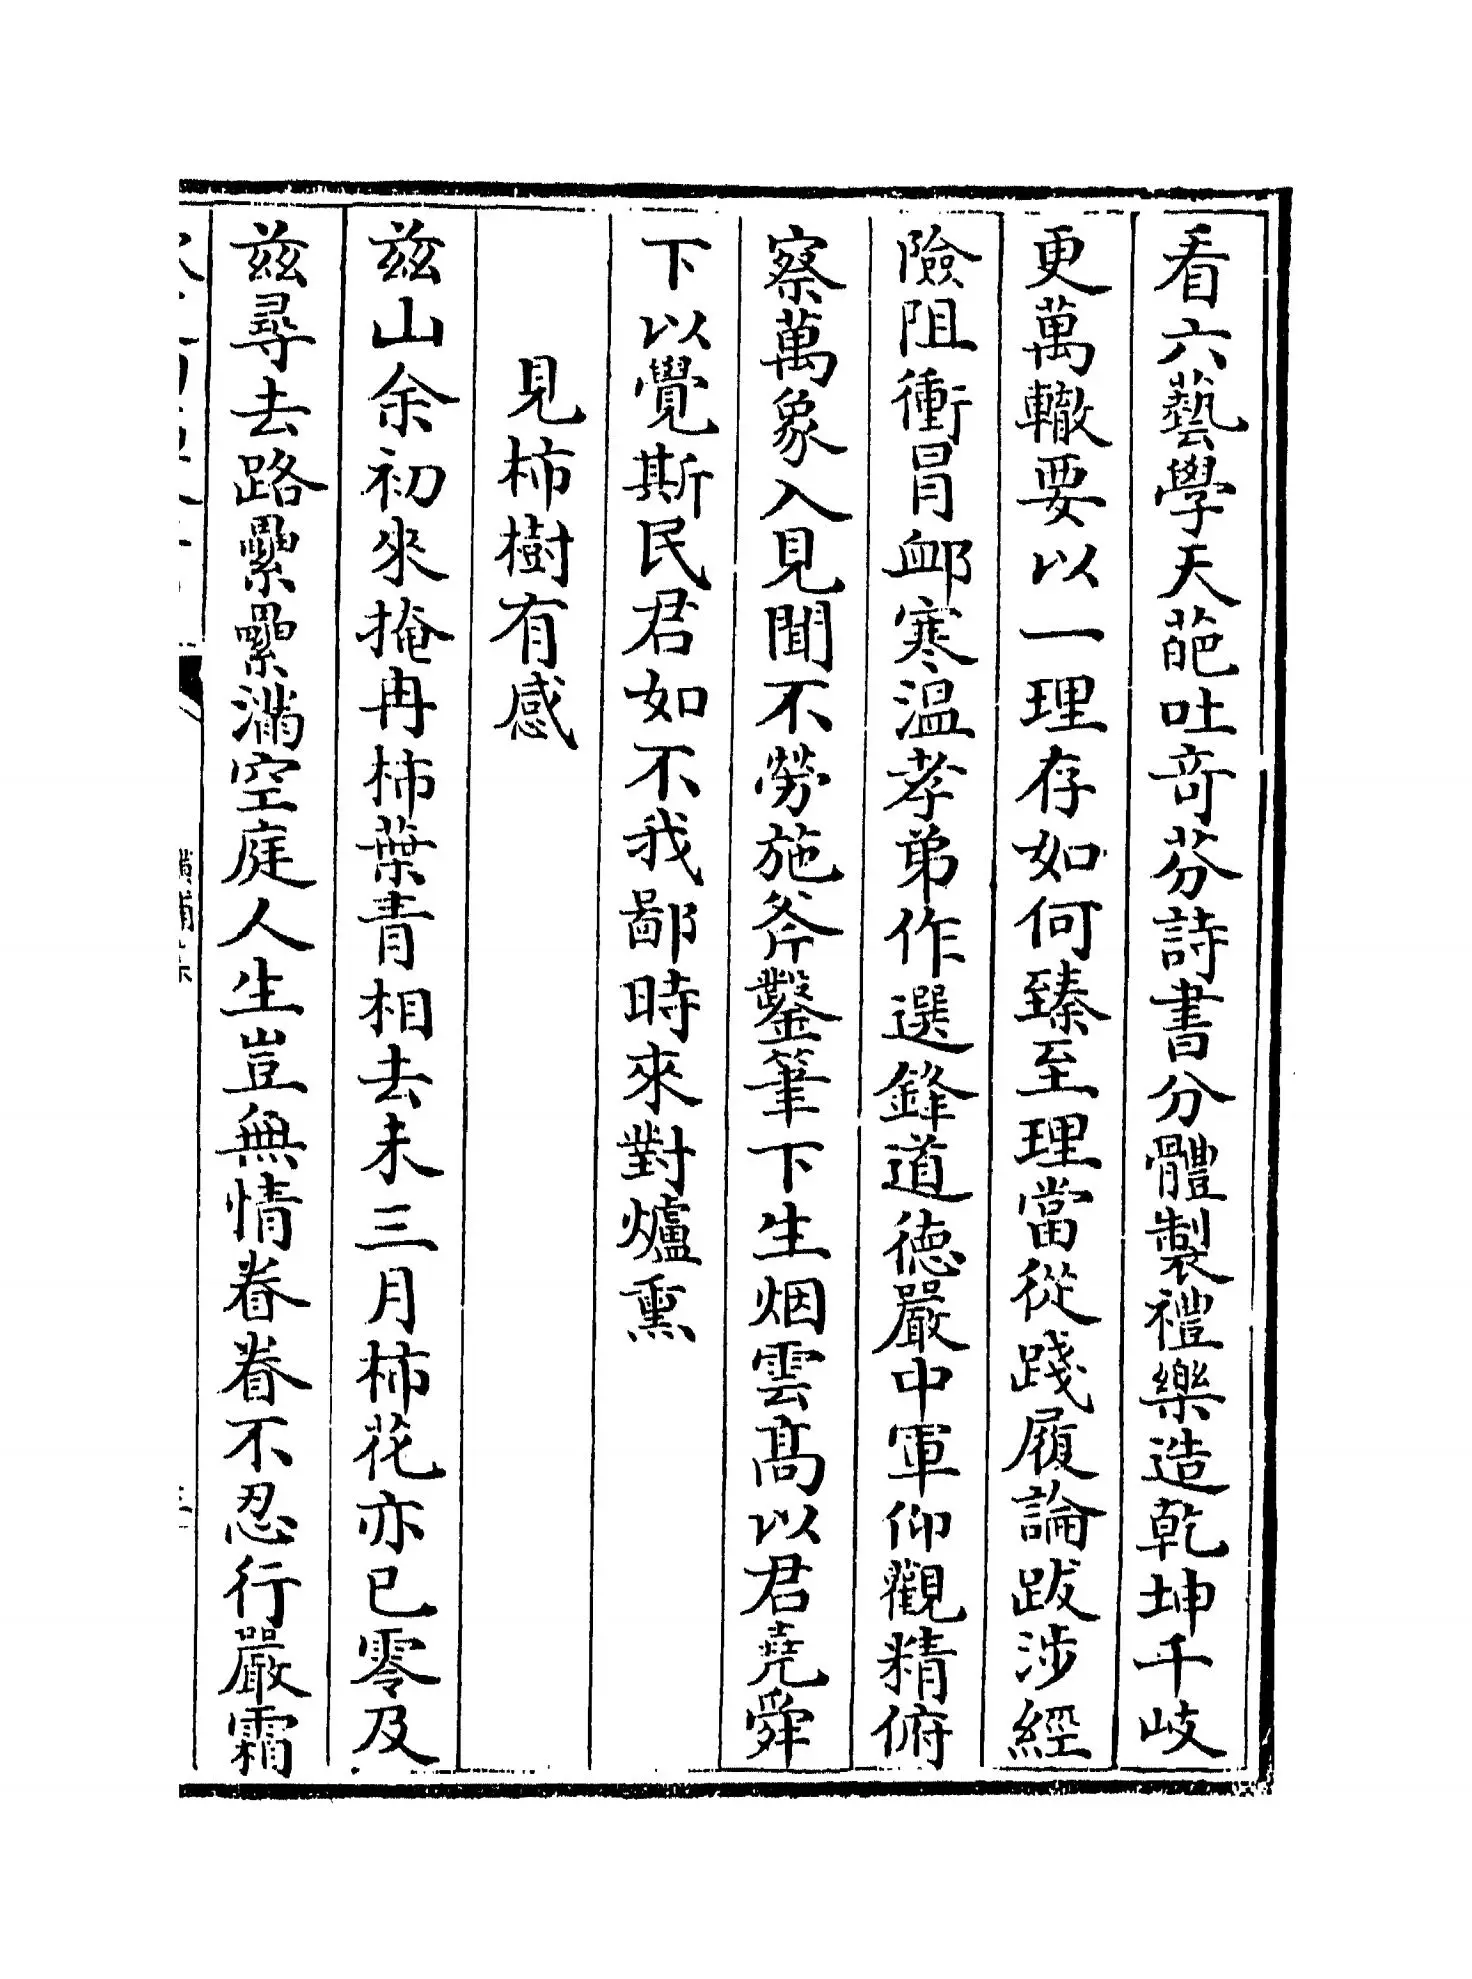 看六藝學天葩吐奇芬詩書分體製禮樂造乾坤千岐
更萬轍要以一理存如何臻至理當從踐履論跋涉經
險阻衝冒衈寒温孝弟作選鋒道德嚴中軍仰觀精俯
察萬象入見聞不勞施斧鑿筆下生烟雲髙以君堯舜
下以覺斯民君如不我鄙時來對爐熏
見柿樹有感
兹山余初來掩冉柿葉青相去未三月柿花亦已零及
兹尋去路纍纍滿空庭人生豈無情眷眷不忍行嚴霜